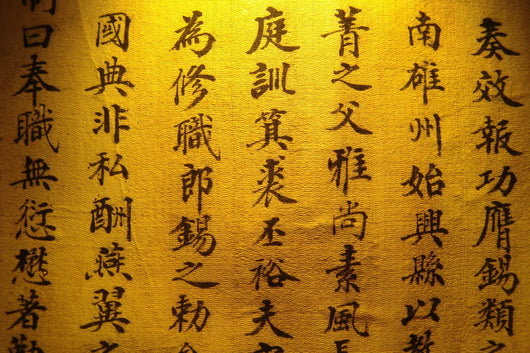 奏效報功膺錫類之
南雄州始興縣以教
菁之父雅尚素風長
庭訓箕裘丕裕夫
為修職郎錫之勅
國典非私酬燕翼之
制曰奉職無愆懋著勤